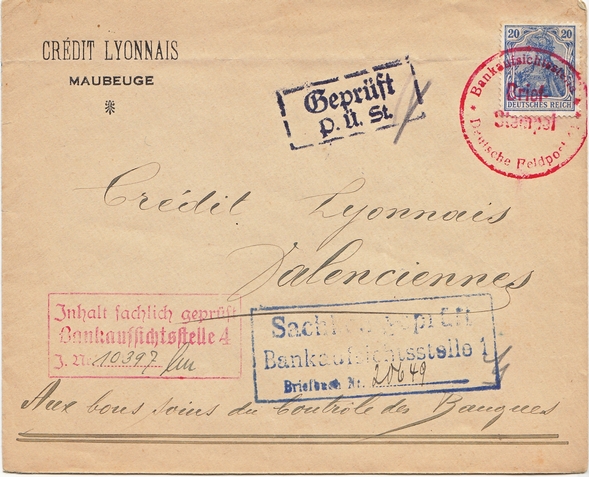 CRÉDIT LYONNAIS
MAUBEUGE
Geprüft
P. Ü. St.
20 20
DEUTSCHES REICH
Brief
Stempel
Deutsche Feldpost
Crédit Lyonnais
Valenciennes
Inhalt sachlich geprüft
Bankaufsichtsstelle 4
J. Nr. 10397
Sachlich geprüft
Bankaufsichtsstelle 1
Briefbuch Nr. 20649
Aux bons soins du Contrôle des Banques